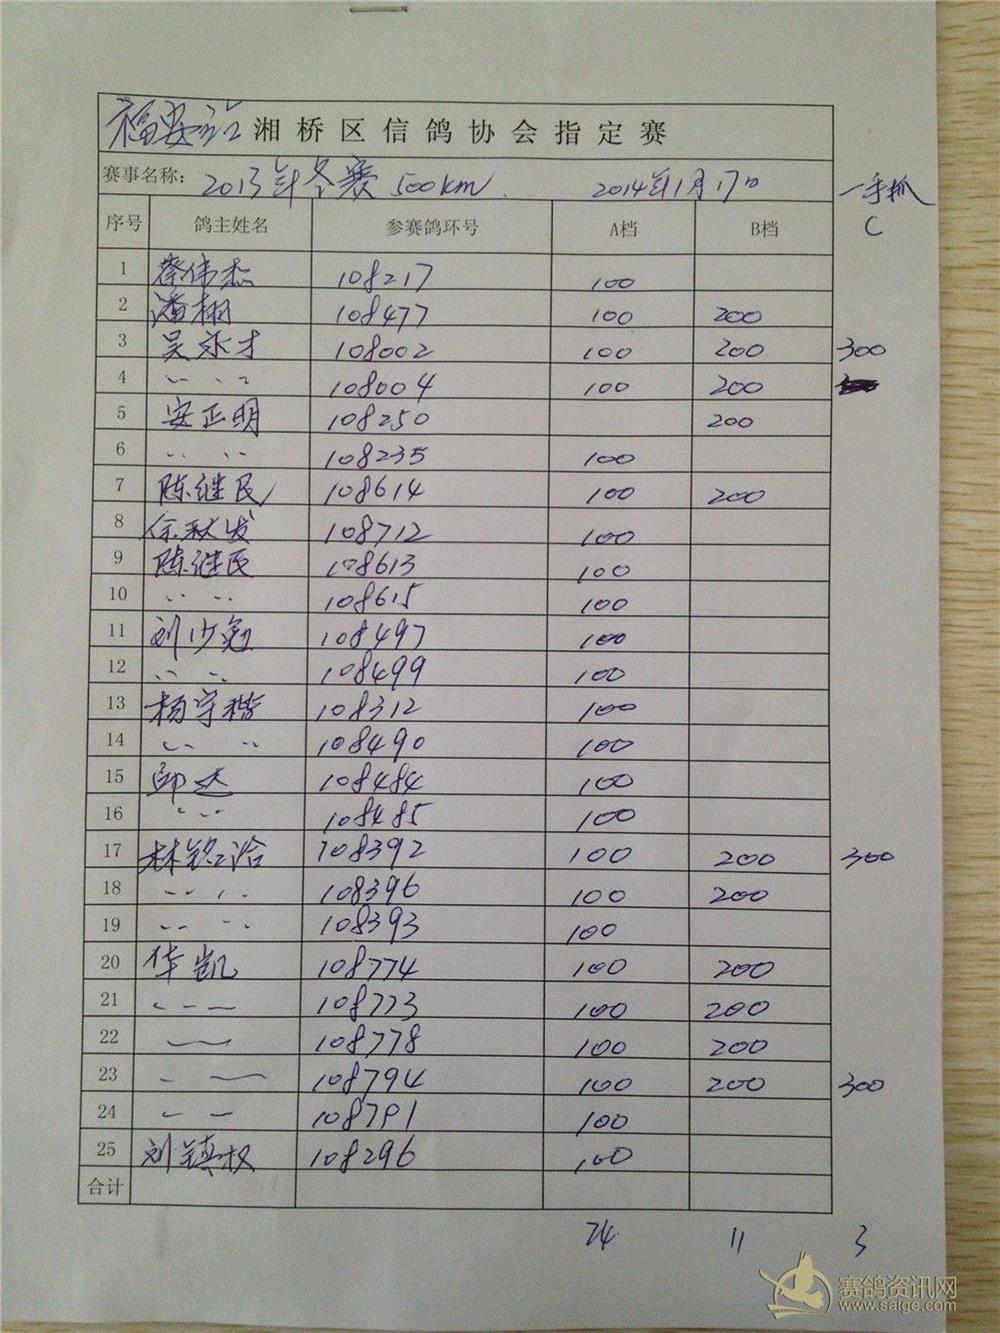 福安站 湘桥区信鸽协会指定赛
赛事名称: 2013年冬赛 500km. 2014年1月17日 一手抓
序号 鸽主姓名 参赛鸽环号 A档 B档 C
1 蔡伟杰 108217 100
2 潘栩 108477 100 200
3 吴永才 108002 100 200 300
4 〃 〃 108004 100 200
5 安正明 108250 200
6 〃 〃 108235 100
7 陈继民 108614 100 200
8 徐秋发 108712 100
9 陈继民 108613 100
10 〃 〃 108615 100
11 刘少勉 108497 100
12 〃 〃 108499 100
13 杨宇楷 108312 100
14 〃 〃 108490 100
15 邱达 108484 100
16 〃 〃 108485 100
17 林铭洽 108392 100 200 300
18 〃 〃 108396 100 200
19 〃 〃 108393 100
20 华凯 108774 100 200
21 〃 〃 108773 100 200
22 〃 108778 100 200
23 〃 〃 108794 100 200 300
24 〃 〃 108791 100
25 刘镇权 108296 100
合计
24 11 3
赛鸽资讯网
www.saige.com